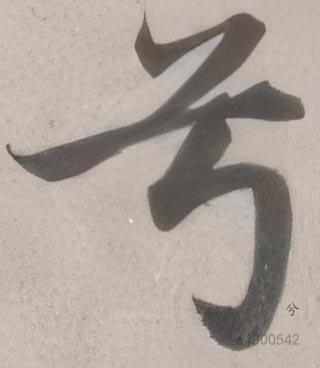 兮
兮
1300542